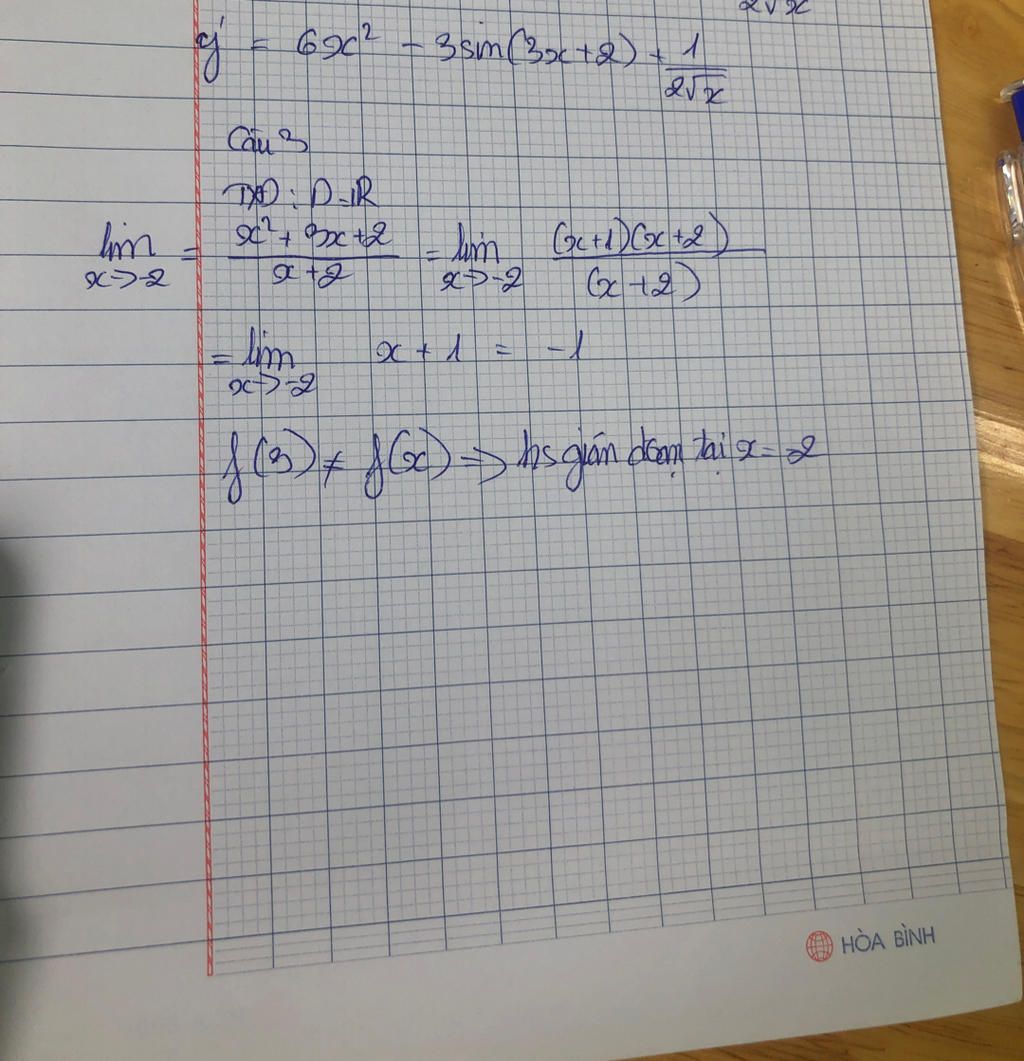 2√x
y' = 6x² - 3sin(3x+2) + 1/(2√x)
Câu 3
TXĐ: D=ℝ
lim x→-2 = (x²+3x+2)/(x+2) = lim x→-2 ((x+1)(x+2))/((x+2))
= lim x→-2 x + 1 = -1
f(3) ≠ f(x) => hs gián đoạn tại x=-2
HÒA BÌNH